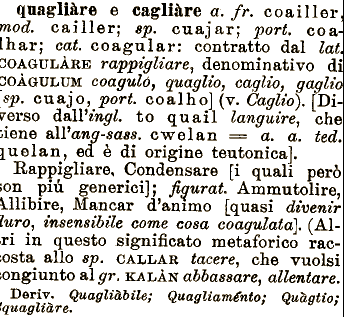 quagliàre e cagliàre a. fr. coailler,
mod. cailler; sp. cuajar; port. coa-
lhar; cat. coagular: contratto dal lat.
COAGULÀRE rappigliare, denominativo di
COÀGULUM coagulo, quaglio, caglio, gaglio
[sp. cuajo, port. coalho] (v. Caglio). [Di-
verso dall'ingl. to quail languire, che
tiene all'ang-sass. cwelan = a. a. ted.
quelan, ed è di origine teutonica].
Rappigliare, Condensare [i quali però
son più generici]; figurat. Ammutolire,
Allibire, Mancar d'animo [quasi divenir
duro, insensibile come cosa coagulata]. (Al-
tri in questo significato metaforico rac-
costa allo sp. CALLAR tacere, che vuolsi
congiunto al gr. KALÀN abbassare, allentare.
Deriv. Quagliàbile; Quagliaménto; Quàgtio;
Squagliàre.